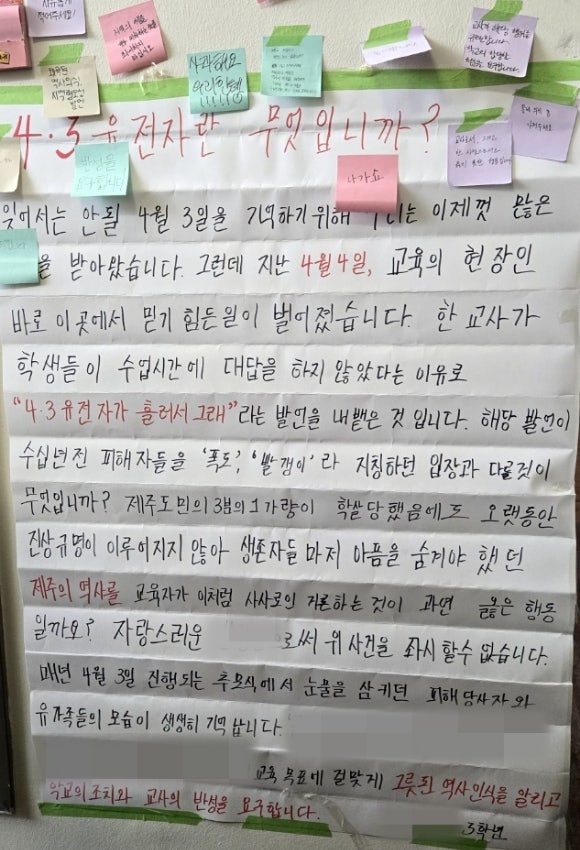 사과해요
우리한텐
!!!!!
지역혐오성
발언
4·3 유전자란 무엇입니까?
반성을
요구합니다
나가쇼
잊어서는 안될 4월 3일을 기억하기 위해 이제껏 많은
을 받아왔습니다. 그런데 지난 4월 4일, 교육의 현장인
바로 이 곳에서 믿기 힘든일이 벌어졌습니다. 한 교사가
학생들이 수업시간에 대답을 하지 않았다는 이유로
"4·3 유전자가 흘러서 그래"라는 발언을 내뱉은 것 입니다. 해당 발언이
수십년전 피해자들을 '폭도', '빨갱이'라 지칭하던 입장과 다를것이
무엇입니까? 제주도민의 3분의 1 가량이 학살 당했음에도 오랫동안
진상규명이 이루어지지 않아 생존자들 마저 아픔을 숨겨야 했던
제주의 역사를 교육자가 이처럼 사사로이 거론하는 것이 과연 옳은 행동
일까요? 자랑스러운 로써 위 사건을 좌시 할수 없습니다.
매년 4월 3일 진행되는 추모식에서 눈물을 삼키던 피해당사자와
유가족들의 모습이 생생히 기억 납니다.
교육 목표에 걸맞게 그릇된 역사인식을 알리고
학교의 조치와 교사의 반성을 요구합니다.
3학년